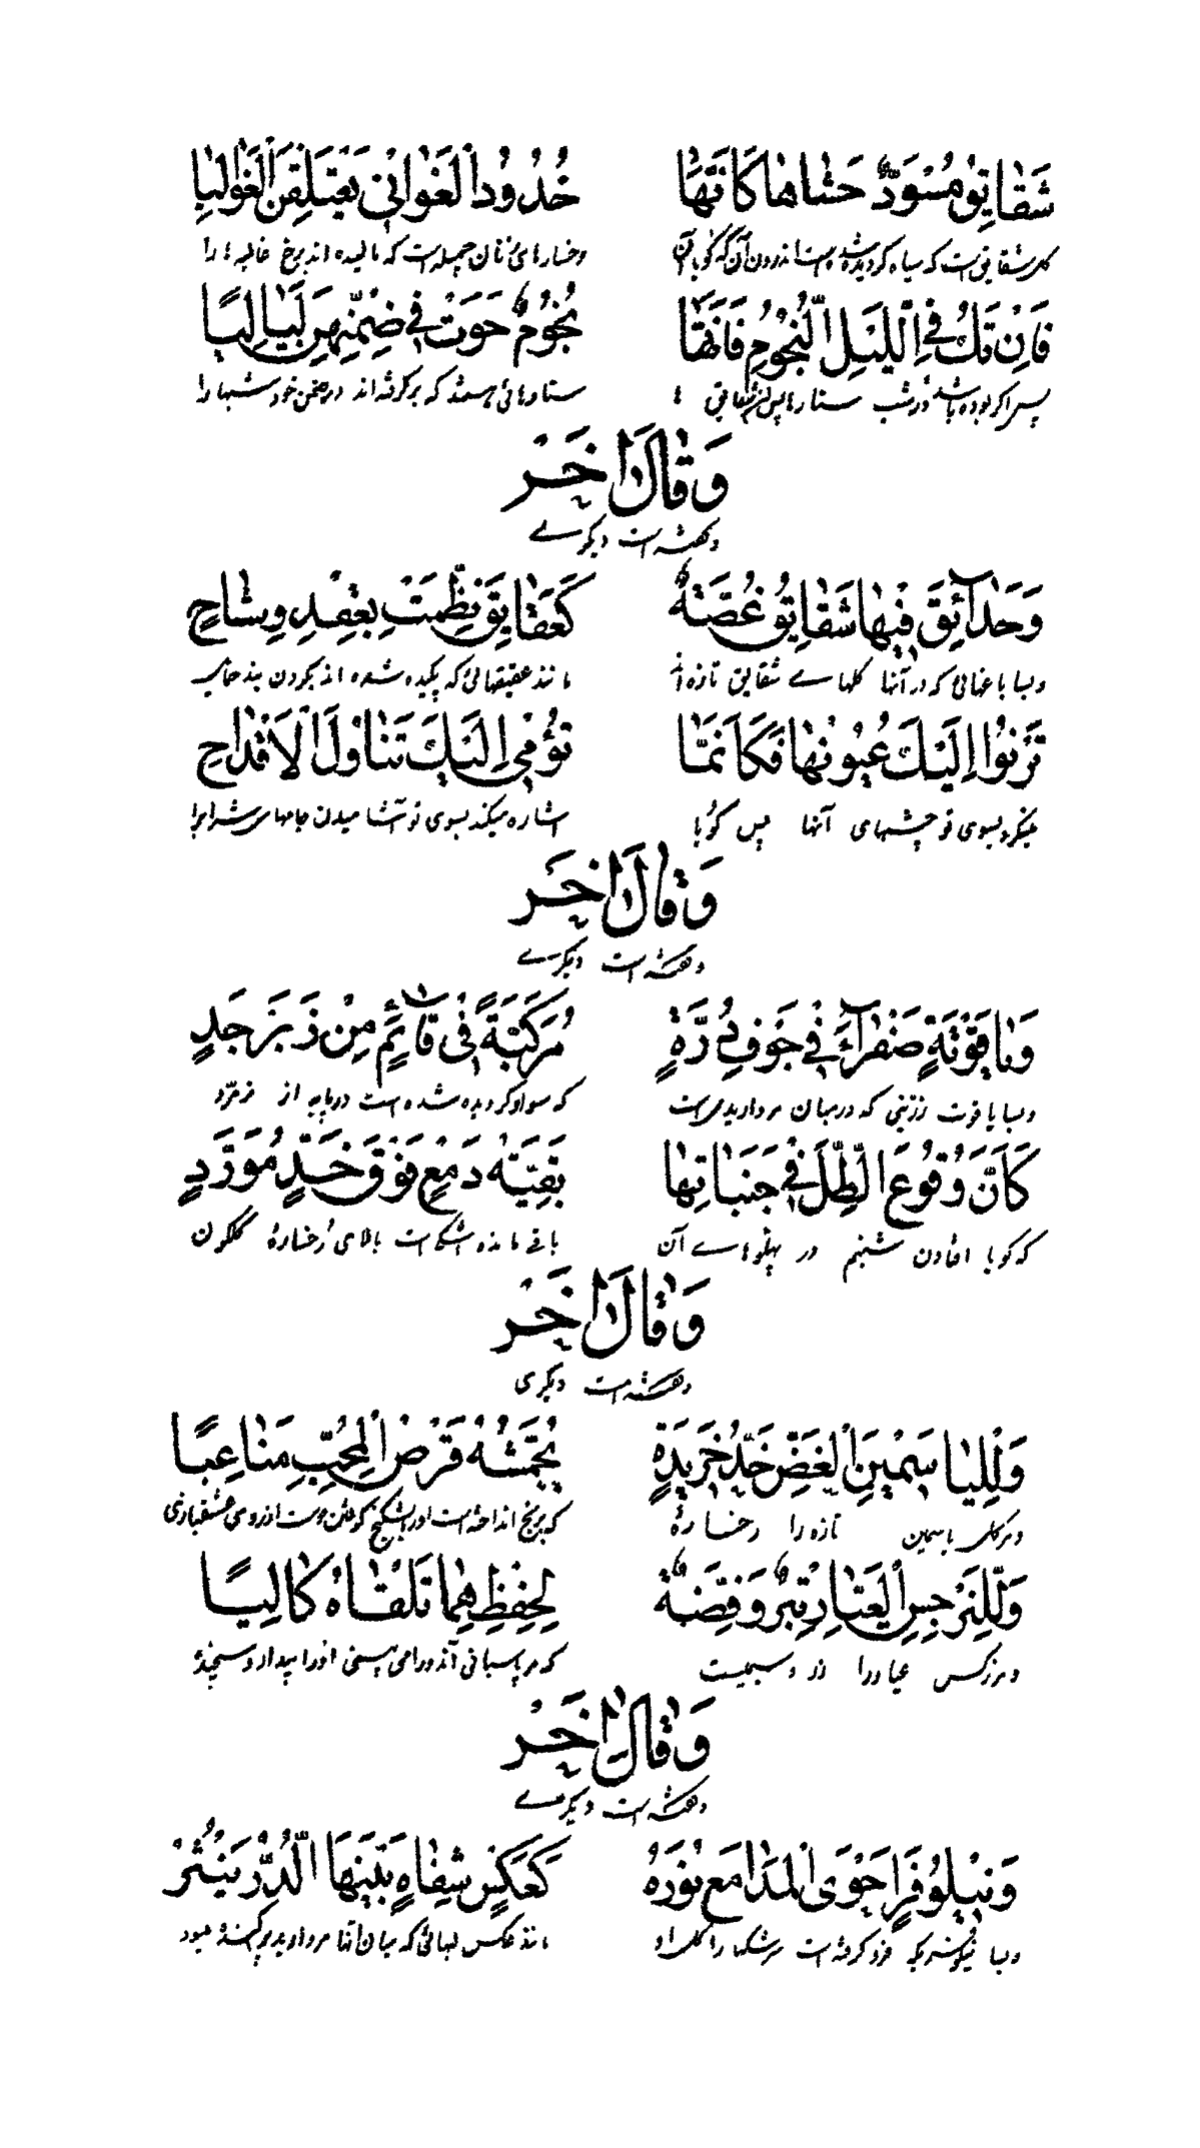 شَقَايِقُ مُسْوَدٌّ حَشَاهَا كَاَنَّهَا خُدُوْدُ الْغَوَانِيْ يَعْتَلِقْنَ الْغَوَالِيَا
كل شقايق است كه سياه كرديده شده است اندرون آن كه كويا آن رخسارهائ زنان جميله است كه ماليده اند برخ غاليه ها را
فَاِنْ تَكُ فِي اللَّيْلِ النُّجُوْمُ فَاِنَّهَا نُجُوْمٌ حَوَتْ فِيْ ضِمْنِهِنَّ لَيَالِيَا
پس اكر بوده باشد در شب ستارها پس اين شقايق ها ستارهائي هستند كه بر كرفته اند در ضمن خود شبها را
وَقَالَ اٰخَرُ
و كفته است ديكرے
وَحَدَآئِقَ فِيْهَا شَقَايِقُ غُضَّةٌ كَعَقَايِقَ نُظِّمَتْ بِعِقْدِ وِشَاحٍ
و بسا باغهائ كه در آنها كلهاے شقايق تازه اند مانند عقيقهائ كه چيده شده اند بكردن بند حمايل
تَرْنُوْا اِلَيْكَ عُيُوْنُهَا فَكَاَنَّمَا تُؤْمِيْ اِلَيْكَ تَنَاوُلَ الْاَقْدَاحِ
مينكرد بسوى تو چشمهاى آنها پس كويا اشاره ميكند بسوى تو آشاميدن جامهاے شراب را
وَقَالَ اٰخَرُ
و كفته است ديكرے
وَيَاقُوْتَةٍ صَفْرَآءَ فِيْ جَوْفِ دُرَّةٍ مُرَكَّبَةً فِيْ قَائِمٍ مِنْ زَبَرْجَدٍ
و بسا ياقوت زرينى كه در ميان مرواريدى است كه سوار كرديده شده است در پايه از زمرّد
كَاَنَّ وُقُوْعَ الطَّلِّ فِيْ جَنَبَاتِهَا بَقِيَّةُ دَمْعٍ فَوْقَ خَدٍّ مُوَرَّدٍ
كه كويا افتادن شبنم در پهلوهاے آن باقے مانده اشك است بالاى رخسارهٔ كلكون
وَقَالَ اٰخَرُ
و كفته است ديكرى
وَلِلْيَاسَمِيْنِ الْغَضِّ خَدُّ خَرِيْدَةٍ يُجَمِّشُهُ قَرْضُ الْمُحِبِّ مَنَاعِبًا
و مر كل ياسمين تازه را رخسارهٔ
وَلِلنَّرْجِسِ الْعَيَّارِ تِبْرٌ وَفِضَّةٌ لِحِفْظِهِمَا تَلْقَاهُ كَالِيًا
و مر نركس عيار را زر و سيم است كه مر پاسبانى آندو را مى بينى او را بيدار
وَقَالَ اٰخَرُ
و كفته است ديكرے
وَنَيْلُوْفَرٍ اَحْوَى الْمَدَامِعَ نُوْرُهُ كَعَكْسِ شِفَاهٍ بَيْنَهَا الدُّرُّ يُنْثَرُ
و بسا نيلوفريكه فرو كرفته است سرشكها را كل او مانند عكس لبهائ كه ميان آنها مرواريد پراكنده ميبود